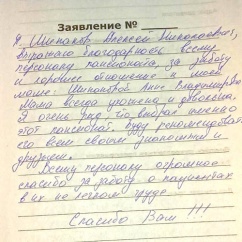 Заявление №
Я, Шипаков Алексей Николаевич,
выражаю благодарность всему
персоналу пансионата, за заботу
и хорошее отношение к моей
маме: Анне Владимировне
Мама всегда ухожена и довольна.
Я очень рад, что выбрал именно
этот пансионат, буду рекомендовать
его всем своим знакомым и
друзьям.
Всему персоналу огромное
спасибо за заботу о пациентах
в их не легком труде.
Спасибо Вам !!!